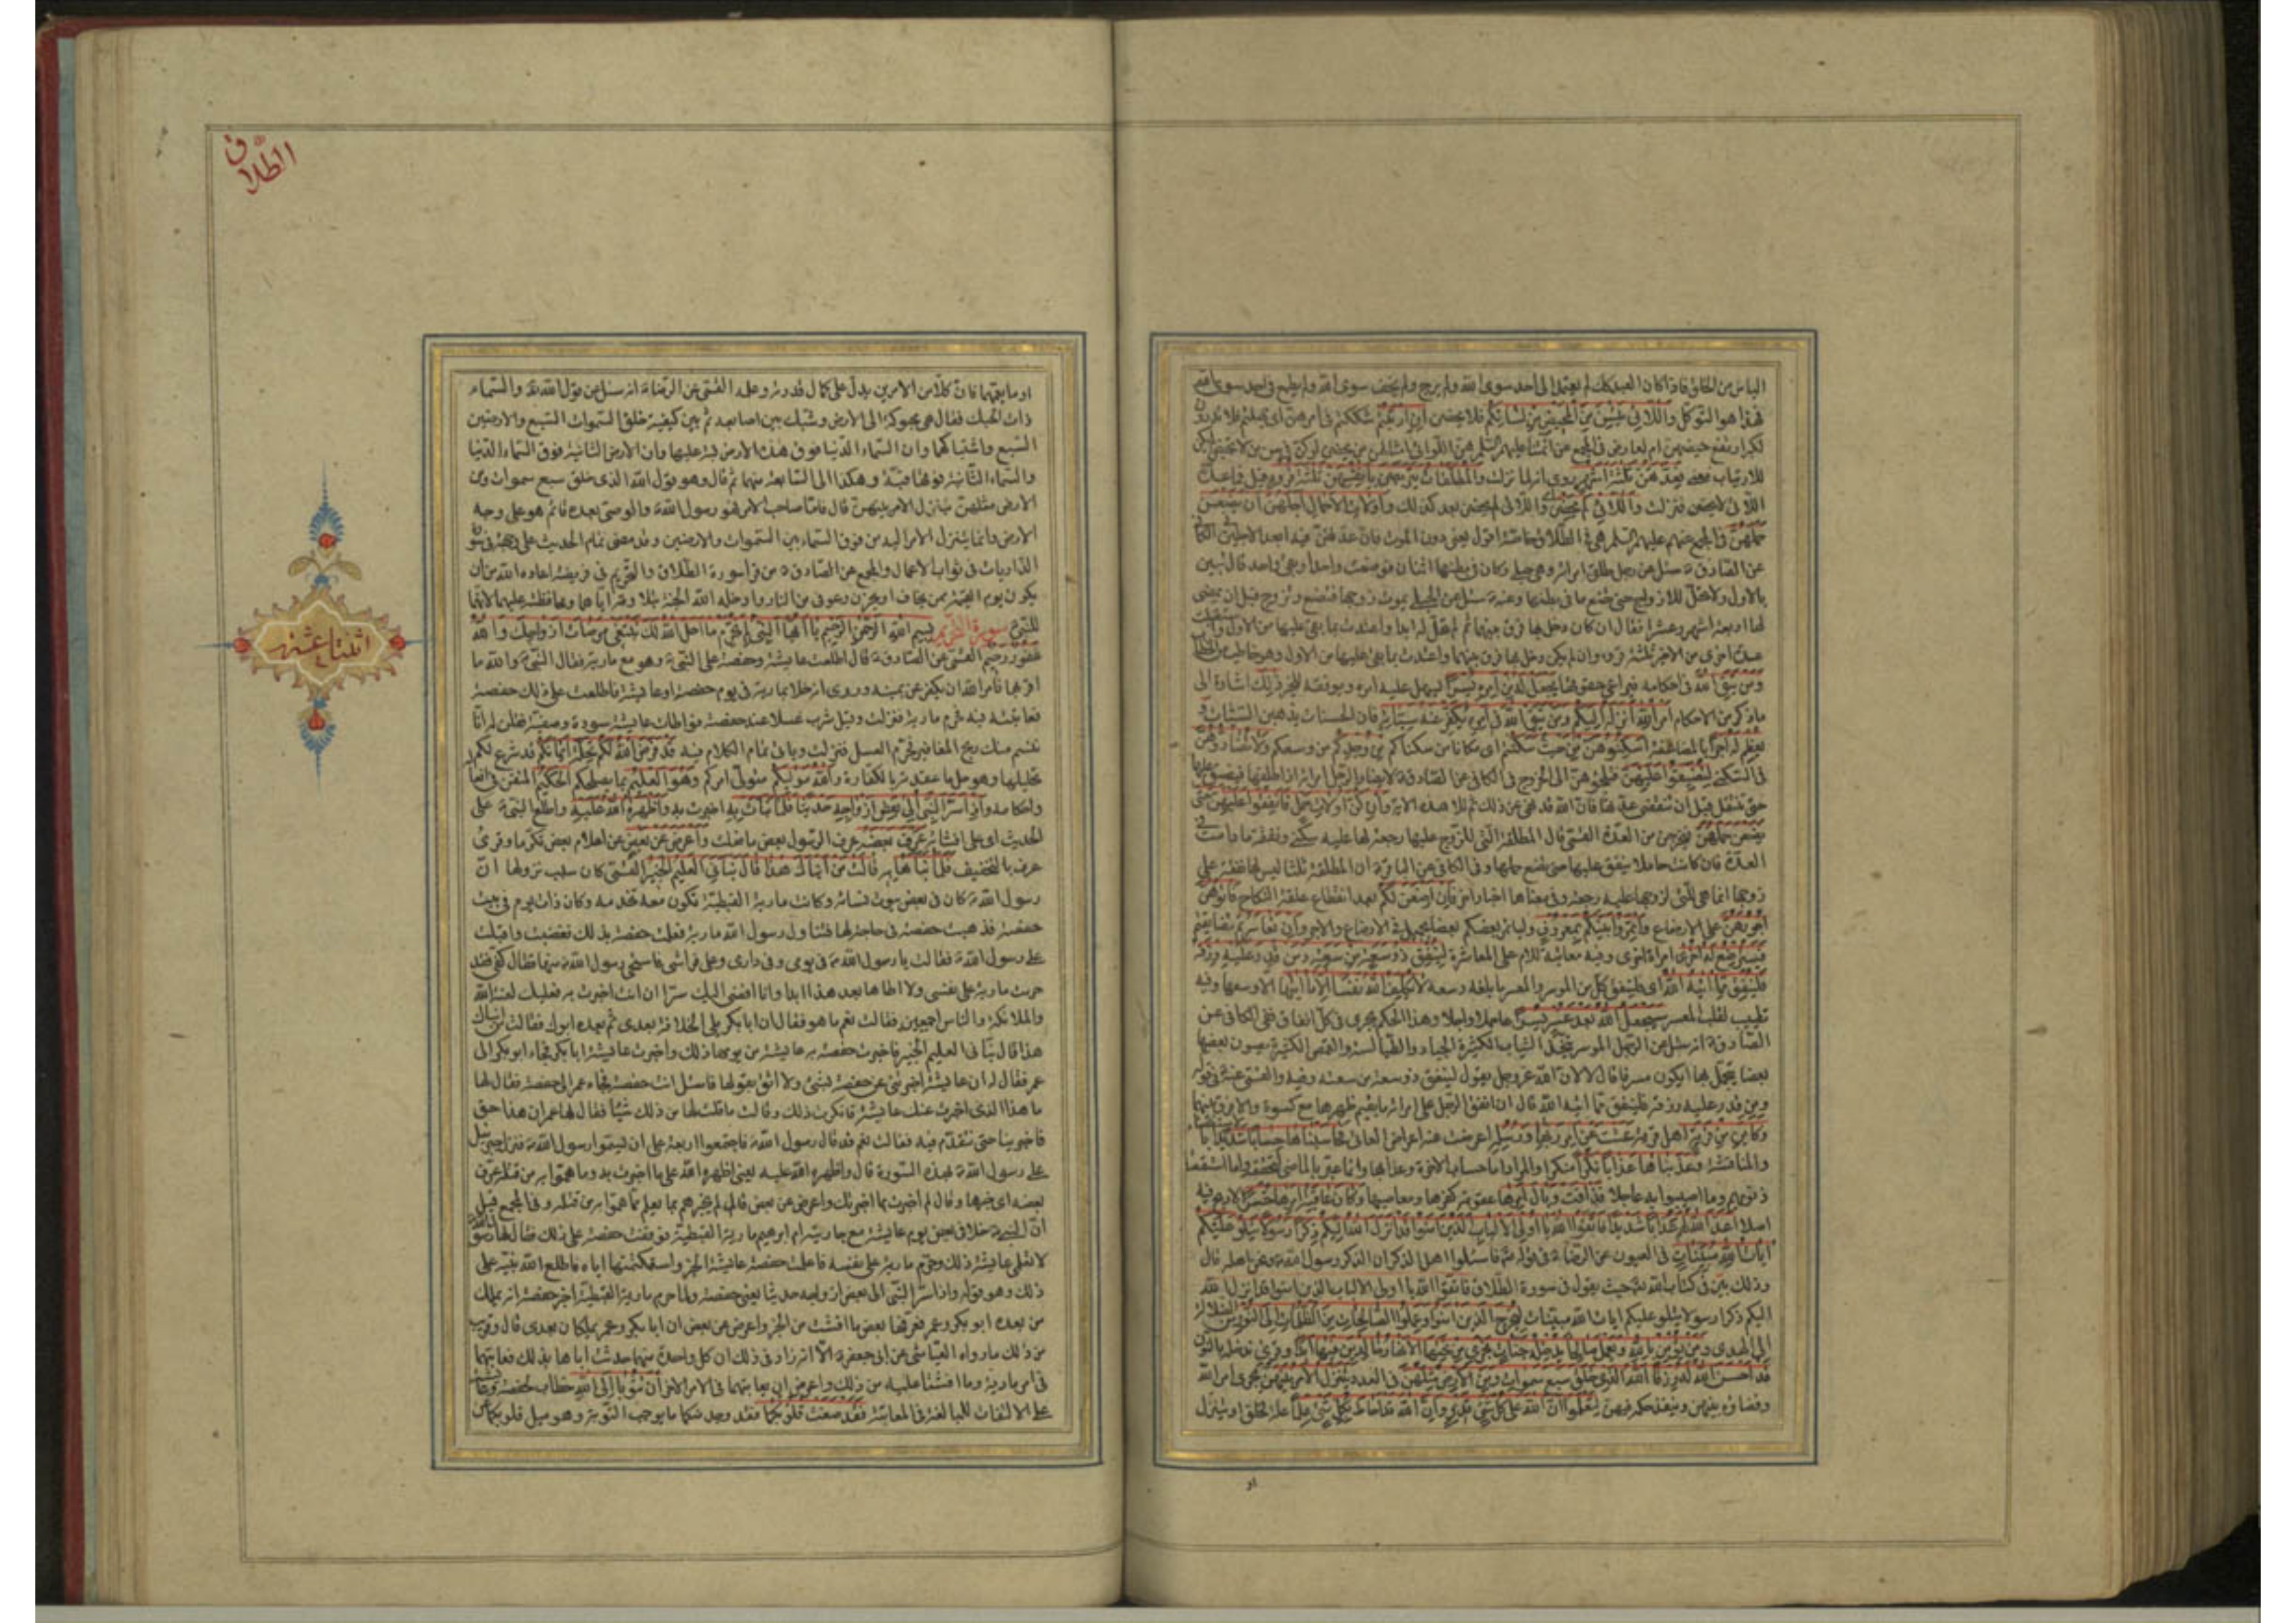 الياس من الخلق فاذا كان العبد كك لم يعتمد الى احد سوى الله ولم يرج ولم يخف سوى الله ولم يطمع في احد سوى الله
فهذا هو التوكل واللائي يئسن من المحيض من نسائكم فلا يحضن ان ارتبتم شككتم في امرهن اى
لكبر ارتفع حيضهن ام لعارض في المجمع عن ائمتنا عليهم السلم هن اللواتي امثالهن من يحضن
للارتياب معنى فعدتهن ثلثة اشهر روى انه لما نزلت والمطلقات يتربصن بانفسهن ثلثة قروء قيل فما عدة
اللائي لا يحضن فنزلت واللائي لم يحضن واللائي لم يحضن بعد كذلك واولات الاحمال اجلهن ان يضعن
حملهن في المجمع عنهم عليهم السلم هي في الطلاق خاصة اقول يعني دون الموت فان عدتهن فيه ابعد الاجلين الكافي
عن الصادق ع سئل عن رجل طلق امراته وهي حبلى وكان في بطنها اثنان فوضعت واحدا وبقي واحد قال تبين
بالاول ولا تحل للازواج حتى تضع ما في بطنها وعنه ع سئل عن الحبلى يموت زوجها فتضع وتزوج قبل ان يمضى
لها اربعة اشهر وعشرا فقال ان كان دخل بها فرق بينهما ثم لم تحل له ابدا واعتدت بما بقي عليها من الاول
عدة اخرى من الاخير ثلثة قروء وان لم يكن دخل بها فرق بينهما واعتدت بما بقي عليها من الاول وهو خاطب من الخطاب
ومن يتق الله في احكامه فيراعي حقوقها يجعل له من امره يسرا يسهل عليه امره ويوفقه للخير ذلك اشارة الى
ماذكر من الاحكام امر الله انزله اليكم ومن يتق الله في امره يكفر عنه سيئاته فان الحسنات يذهبن السيئات و
يعظم له اجرا بالمضاعفة اسكنوهن من حيث سكنتم اى مكانا من سكناكم من وجدكم من وسعكم ولا تضاروهن
في السكنى لتضيقوا عليهن فتلجؤهن الى الخروج في الكافي عن الصادق ع لا يضار الرجل امراته اذا طلقها فيضيق عليها
حتى تنتقل قبل ان تنقضى عدتها فان الله قد نهى عن ذلك ثم تلا هذه الاية وان كن اولات حمل فانفقوا عليهن حتى
يضعن حملهن فيخرجن من العدة القمى قال المطلقة التى للزوج عليها رجعة لها عليه سكنى ونفقة ما دامت في
العدة فان كانت حاملا ينفق عليها حتى تضع حملها وفي الكافي عن الباقر ع ان المطلقة ثلثا ليس لها نفقة على
زوجها انما هى للتى لزوجها عليها رجعة وفي معناها اخبار اخر فان ارضعن لكم بعد انقطاع علقة النكاح فاتوهن
اجورهن على الارضاع وأتمروا بينكم بمعروف وليامر بعضكم بعضا بجميل في الارضاع والاجر وان تعاسرتم تضايقتم
فسترضع له اخرى امراة اخرى وفيه معاتبة للام على المعاسرة لينفق ذو سعة من سعته ومن قدر عليه رزقه
فلينفق مما اتيه الله اى فلينفق كل من الموسر والمعسر ما بلغه وسعه لا يكلف الله نفسا الا ما اتيها الا وسعها وفيه
تطييب لقلب المعسر سيجعل الله بعد عسر يسرا عاجلا واجلا وهذا الحكم يجرى في كل انفاق ففي الكافي عن
الصادق ع انه سئل عن الرجل الموسر يتخذ الثياب الكثيرة الجياد والطيالسة والقمص الكثيرة يصون بعضها
بعضا يتجمل بها ايكون مسرفا قال لا لان الله عز وجل يقول لينفق ذو سعة من سعته وفيه والقمى عنه ع في قوله
ومن قدر عليه رزقه فلينفق مما اتيه الله قال ان انفق الرجل على امراته ما يقيم ظهرها مع كسوة والا فرق بينهما
وكاين من قرية اهل قرية عتت عن امر ربها ورسله اعرضت عنه اعراض العاتى فحاسبناها حسابا شديدا
والمناقشة وعذبناها عذابا نكرا منكرا والمراد حساب الاخرة وعذابها وانما عبر بالماضى لتحققه
ذنوبهم وما اصيبوا به عاجلا فذاقت وبال امرها عقوبة كفرها ومعاصيها وكان عاقبة امرها خسرا لا ربح فيه
اصلا اعد الله لهم عذابا شديدا فاتقوا الله يا اولى الالباب الذين امنوا قد انزل الله اليكم ذكرا رسولا يتلو عليكم
ايات الله مبينات في العيون عن الرضا ع في قوله تع فاسئلوا اهل الذكر ان الذكر رسول الله ص ونحن اهله قال
وذلك بين في كتاب الله تع حيث يقول في سورة الطلاق فاتقوا الله يا اولى الالباب الذين امنوا قد انزل الله
اليكم ذكرا رسولا يتلو عليكم ايات الله مبينات ليخرج الذين امنوا وعملوا الصالحات من الظلمات الى النور من الضلالة
الى الهدى ومن يؤمن بالله ويعمل صالحا يدخله جنات تجرى من تحتها الانهار خالدين فيها ابدا وقرئ ندخله بالنون
قد احسن الله له رزقا الله الذى خلق سبع سموات ومن الارض مثلهن في العدد يتنزل الامر بينهن يجرى امر الله
وقضاؤه بينهن وينفذ حكمه فيهن لتعلموا ان الله على كل شئ قدير وان الله قد احاط بكل شئ علما علة لخلق او يتنزل
او
الطلاق
او ما يعمهما فان كلا من الامرين يدل على كمال قدرته وعلمه القمى عن الرضا ع انه سئل عن قول الله تع والسماء
ذات الحبك فقال هى محبوكة الى الارض وشبك بين اصابعه ثم بين كيفية خلق السموات السبع والارضين
السبع واشتباكها وان السماء الدنيا فوق هذه الارض قبة عليها وان الارض الثانية فوق السماء الدنيا
والسماء الثانية فوقها قبة وهكذا الى السابعة منهما ثم قال وهو قول الله الذى خلق سبع سموات ومن
الارض مثلهن يتنزل الامر بينهن قال فاما صاحب الامر فهو رسول الله ص والوصى بعده قائم هو على وجه
الارض وانما يتنزل الامر اليه من فوق السماء بين السموات والارضين وقد مضى تمام الحديث على وجهه في سورة
الذاريات في ثواب الاعمال والمجمع عن الصادق ع من قرا سورة الطلاق والتحريم في فريضة اعاذه الله من ان
يكون يوم القيمة ممن يخاف او يحزن وعوفى من النار وادخله الله الجنة بتلاوته اياهما ومحافظته عليهما لانهما
للنبى ص سورة التحريم بسم الله الرحمن الرحيم يا ايها النبى لم تحرم ما احل الله لك تبتغى مرضات ازواجك والله
غفور رحيم القمى عن الصادق ع قال اطلعت عايشة وحفصة على النبى ص وهو مع مارية فقال النبى ص والله ما
اقربها فامر الله ان يكفر عن يمينه وروى انه خلا بمارية في يوم حفصة او عايشة فاطلعت على ذلك حفصة
فعاتبته فيه فحرم مارية فنزلت وقيل شرب عسلا عند حفصة فواطات عايشة سودة وصفية فقلن له انا
نشم منك ريح المغافير فحرم العسل فنزلت وياتى تمام الكلام فيه قد فرض الله لكم تحلة ايمانكم قد شرع لكم
تحليلها وهو حل ما عقدته بالكفارة والله موليكم متولى امركم وهو العليم بما يصلحكم الحكيم المتقن في افعاله
واحكامه واذ اسر النبى الى بعض ازواجه حديثا فلما نبات به اخبرت به واظهره الله عليه واطلع النبى ص على
الحديث اى على افشائه عرف بعضه عرف الرسول بعض ما فعلت واعرض عن بعض عن اعلام بعض تكرما وقرئ
عرف بالتخفيف فلما نباها به قالت من انباك هذا قال نبانى العليم الخبير القمى كان سبب نزولها ان
رسول الله ص كان في بعض بيوت نسائه وكانت مارية القبطية تكون معه تخدمه وكان ذات يوم في بيت
حفصة فذهبت حفصة في حاجة لها فتناول رسول الله مارية فعلمت حفصة بذلك فغضبت واقبلت
على رسول الله ص فقالت يا رسول الله ص في يومى وفي دارى وعلى فراشى فاستحيى رسول الله ص منها فقال كفى فقد
حرمت مارية على نفسى ولا اطاها بعد هذا ابدا وانا افضى اليك سرا ان انت اخبرت به فعليك لعنة الله
والملائكة والناس اجمعين فقالت نعم ما هو فقال ان ابا بكر يلى الخلافة بعدى ثم بعده ابوك فقالت من انباك
هذا قال نبانى العليم الخبير فاخبرت حفصة به عايشة من يومها ذلك واخبرت عايشة ابا بكر فجاء ابو بكر الى
عمر فقال له ان عايشة اخبرتنى عن حفصة بشئ ولا اثق بقولها فاسئل انت حفصة فجاء عمر الى حفصة فقال لها
ما هذا الذى اخبرت عنك عايشة فانكرت ذلك وقالت ما قلت لها من ذلك شيئا فقال لها عمر ان هذا حق
فاخبرينا حتى نتقدم فيه فقالت نعم قد قال رسول الله ص فاجتمعوا اربعة على ان يسموا رسول الله ص فنزل جبرئيل
على رسول الله ص بهذه السورة قال واظهره الله عليه يعنى اظهره الله على ما اخبرت به وما هموا به من قتله عرف
بعضه اى خبرها وقال لم اخبرت بما اخبرتك واعرض عن بعض قال لم يخبرهم بما يعلم مما هموا به من قتله وفي المجمع قيل
ان النبى ص خلا في بعض يوم عايشة مع جاريته ام ابرهيم مارية القبطية فوقفت حفصة على ذلك فقال لها رسول الله
لا تعلمى عايشة ذلك وحرم مارية على نفسه فاعلمت حفصة عايشة الخبر واستكتمتها اياه فاطلع الله نبيه على
ذلك وهو قوله واذ اسر النبى الى بعض ازواجه حديثا يعنى حفصة ولما حرم مارية القبطية اخبر حفصة انه يملك
من بعده ابو بكر وعمر فعرفها بعض ما افشت من الخبر واعرض عن بعض ان ابا بكر وعمر يملكان بعدى قال وقريب
من ذلك ما رواه العياشى عن ابى جعفر ع الا انه زاد في ذلك ان كل واحدة منهما حدثت اباها بذلك فعاتبهما
في امر مارية وما افشتا عليه من ذلك واعرض ان يعاتبهما في الامر الاخر ان تتوبا الى الله خطاب لحفصة وعايشة
على الالتفات للمبالغة في المعاتبة فقد صغت قلوبكما فقد وجد منكما ما يوجب التوبة وهو ميل قلوبكما عن
اثنتا عشرة